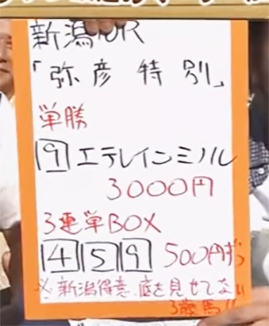 新潟10R
「弥彦特別」
単勝
9 エテレインミノル
3000円
3連単BOX
4 5 9 500円ずつ
※新潟得意、底を見せてない
3歳馬!!